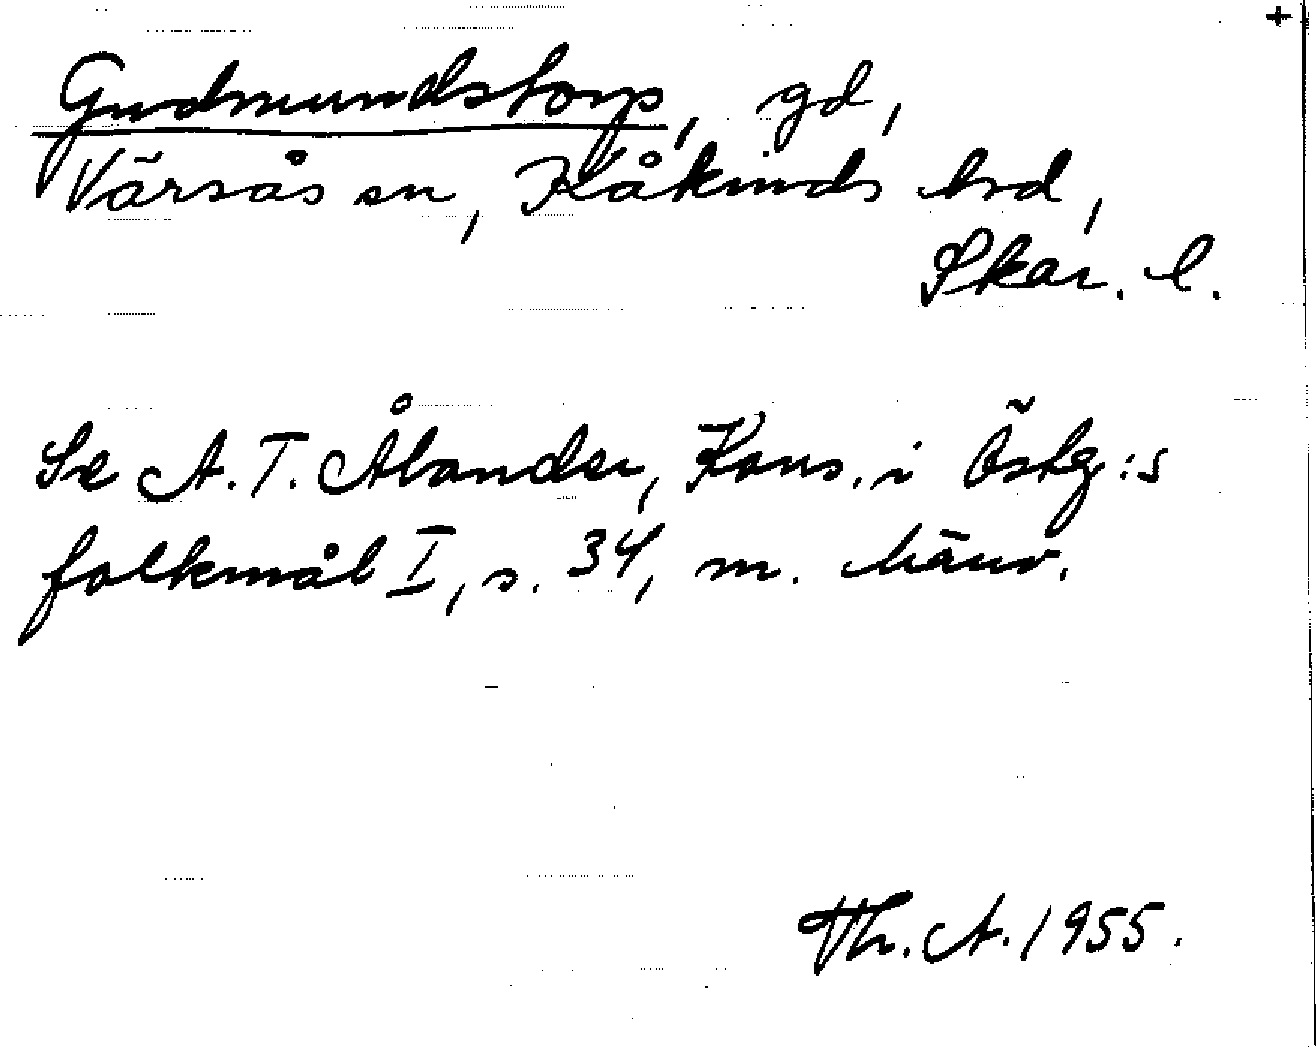 +
Gudmundstorp, gd,
Värsås sn, Kåkinds hrd,
Skar. l.
Se A. T. Ålander, Kons. i Östg:s
folkmål I, s. 34, m. hänv.
Th. A. 1955.